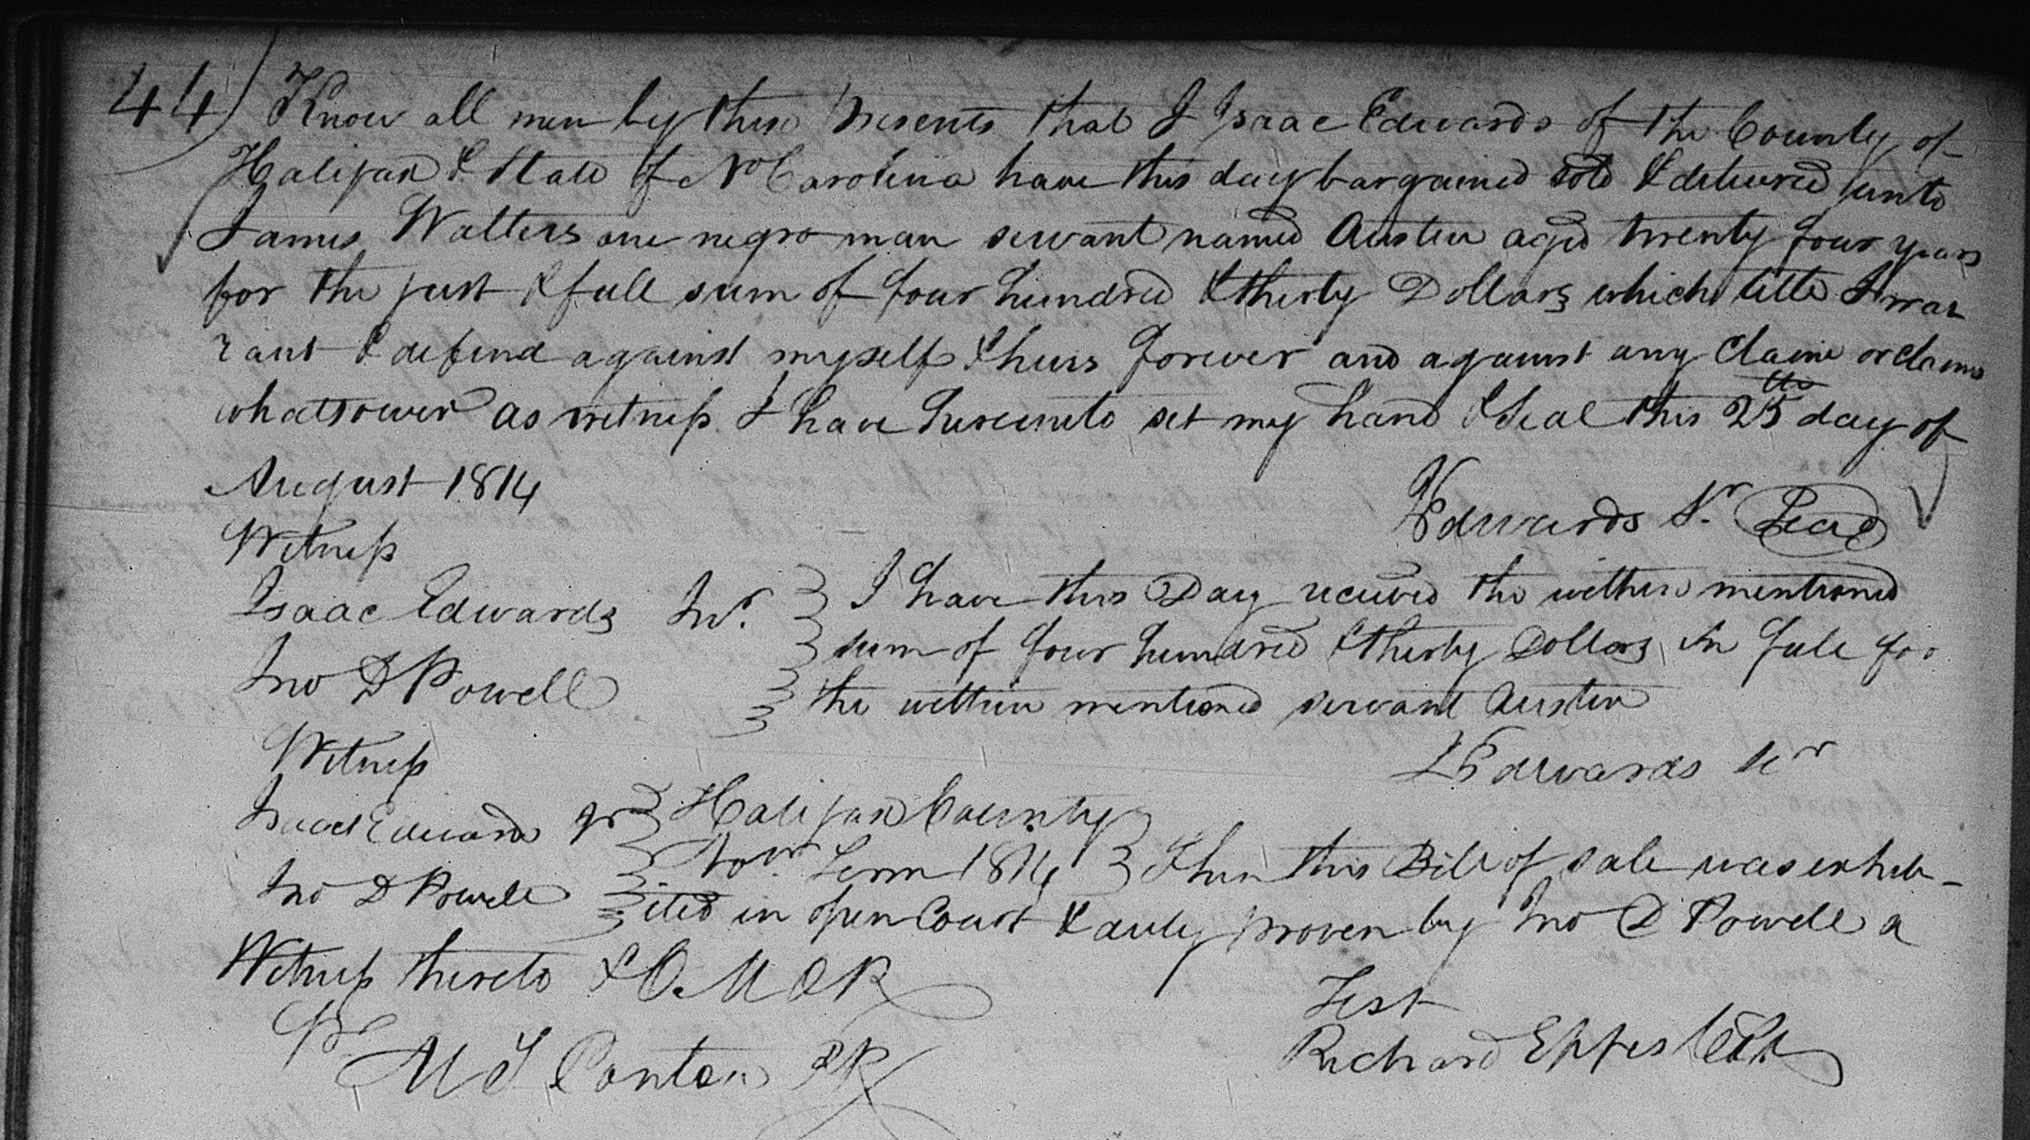 44) Know all men by these Presents that I Isaac Edwards of the County of
Halifax & State of No Carolina have this day bargained sold & delivered unto
James Walters one negro man servant named Austin aged twenty four years
for the just & full sum of four hundred & thirty Dollars which title I war
rant & defend against myself & heirs forever and against any claim or claims
whatsoever as witness I have hereunto set my hand & Seal this 25th day of
August 1814
I Edwards Sr. Seal
Witness
Isaac Edwards Jnr.
Jno D Powell
I have this Day received the within mentioned
sum of four hundred & thirty Dollars in full for
the within mentioned servant Austin
I Edwards Sr
Witness
Isaac Edwards Jr
Jno D Powell
Halifax County
Novr. Term 1814 } Then this Bill of sale was exhib-
ited in open Court & duly proven by Jno D Powell a
Witness thereto & O. M D R
Test
Richard Eppes Clk
Pr
M T Ponton PR